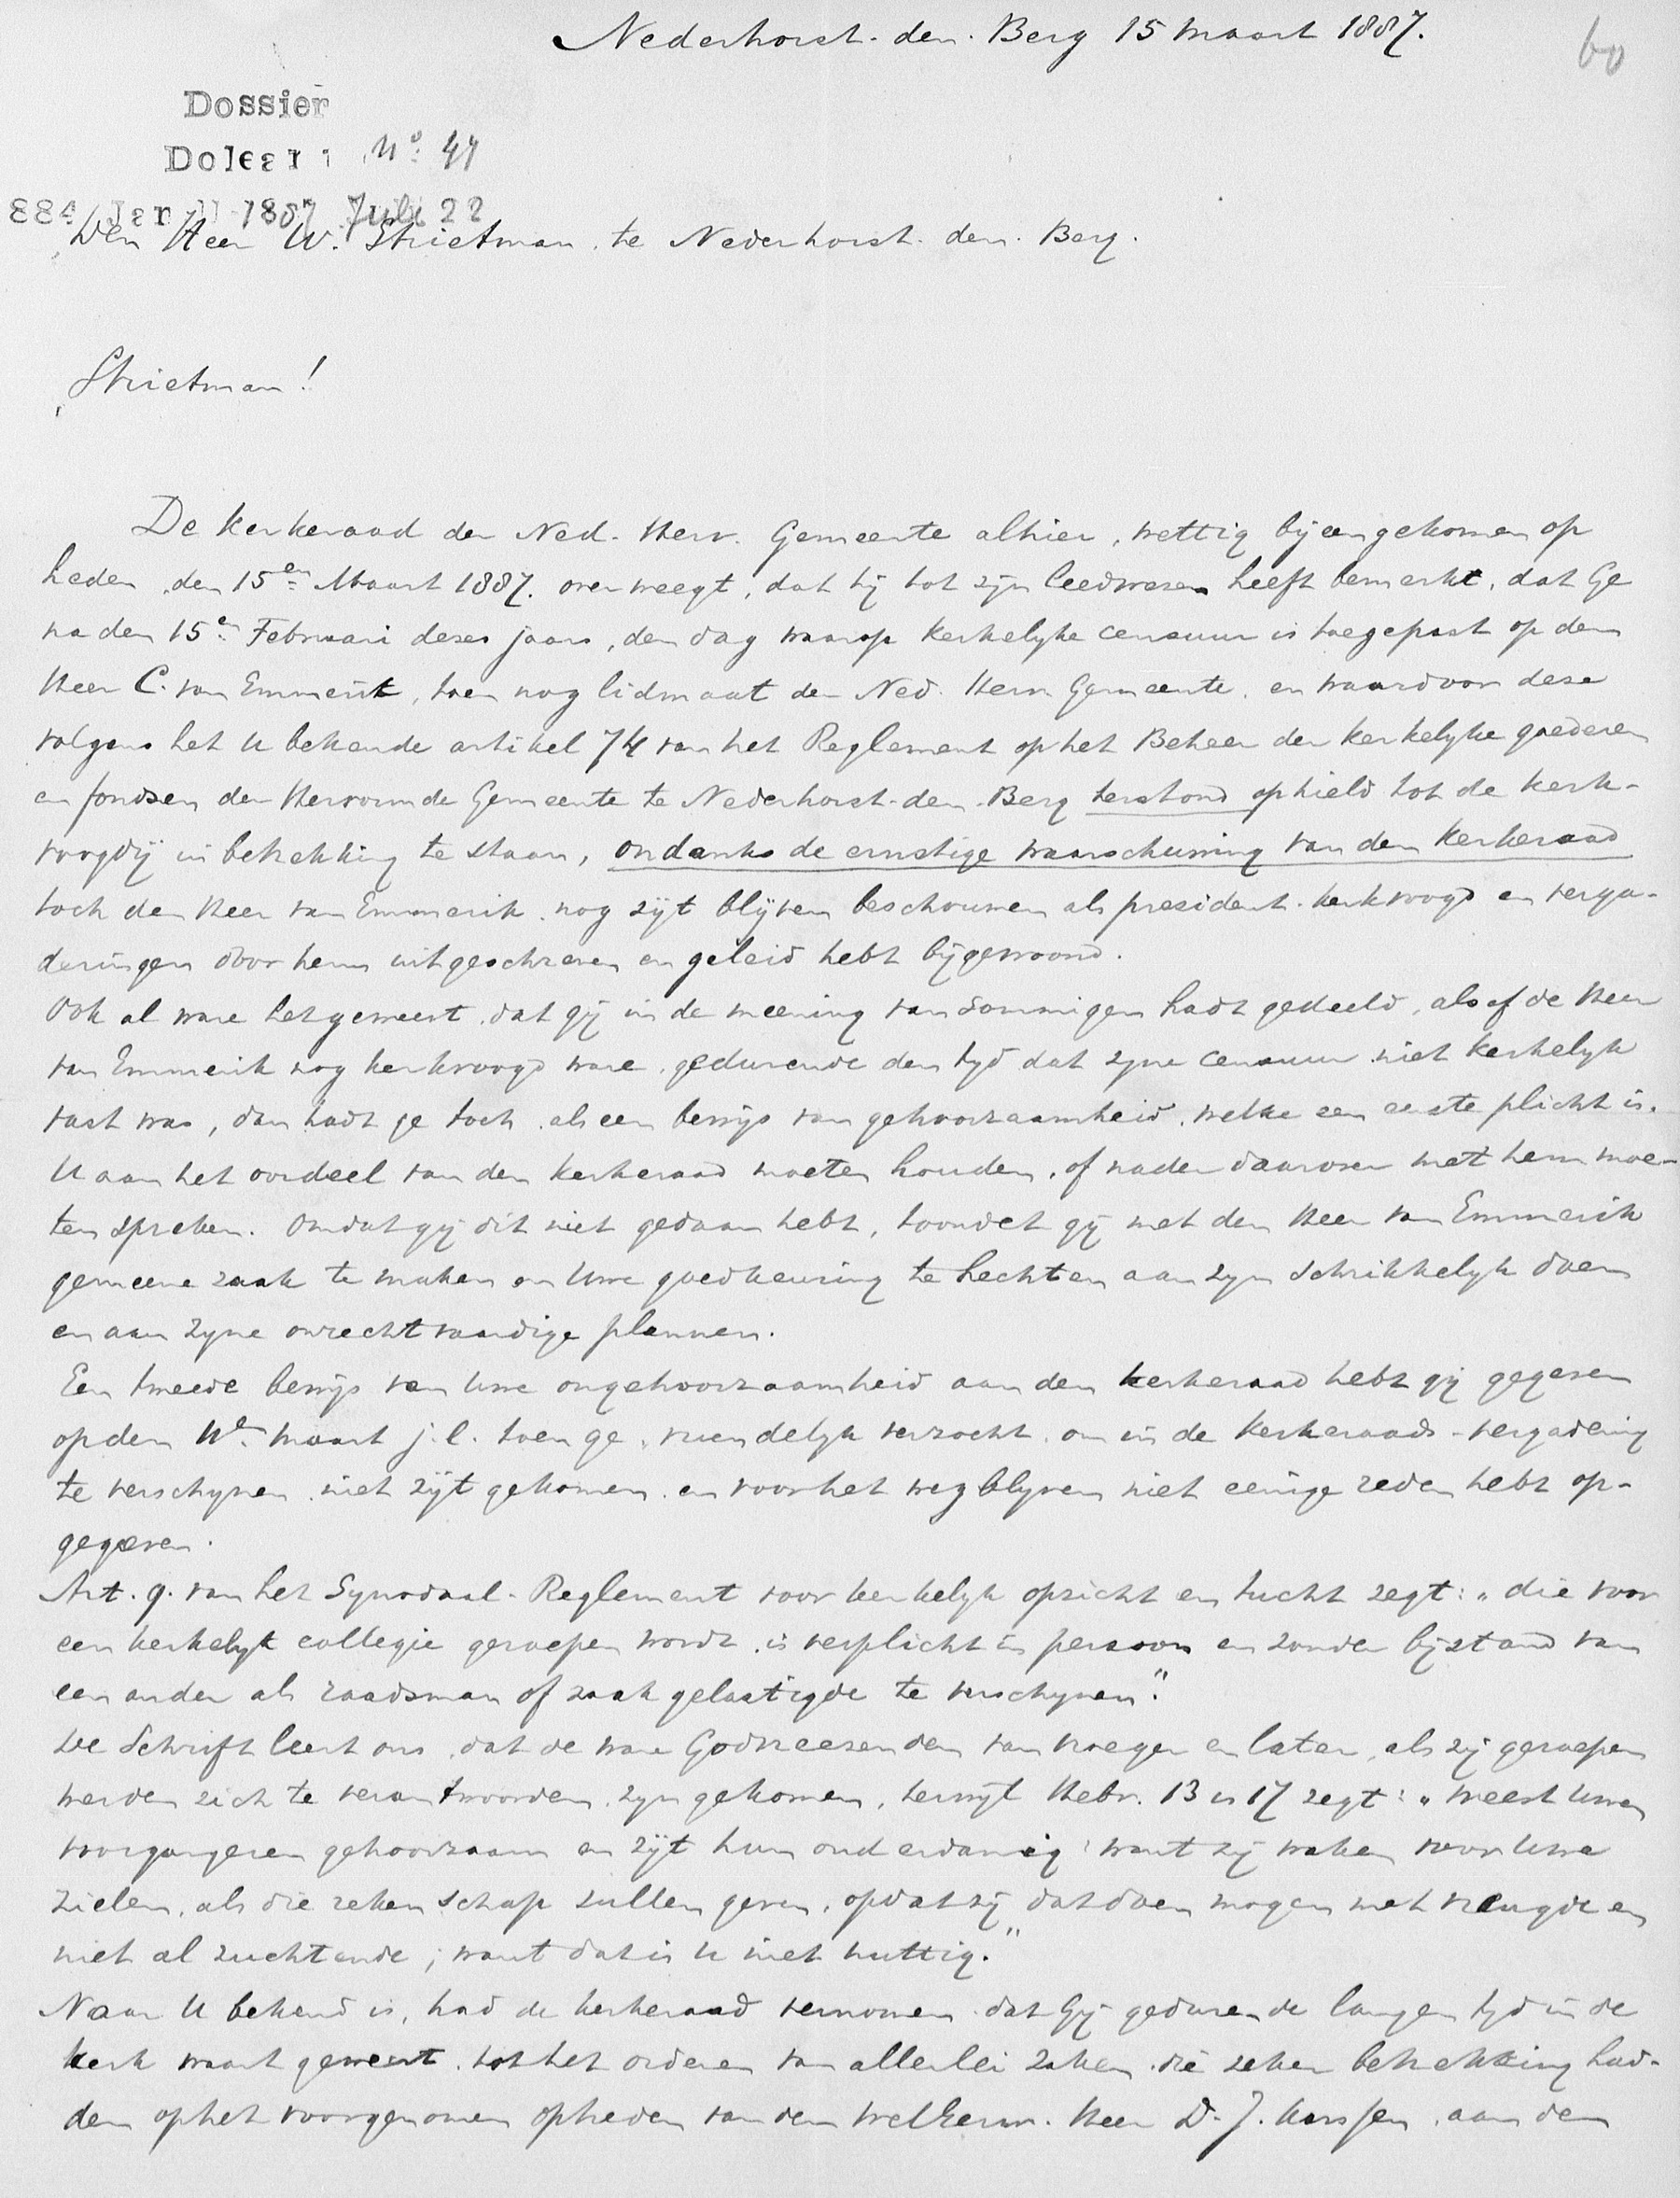 Nederhorst-den-Berg 15 Maart 1887.
60
Dossier
Doleant No. 44
884/Jan 11 1887 Juli 22
Den Heer W. Strietman te Nederhorst-den-Berg.
Strietman!
De kerkeraad der Ned. Herv. Gemeente alhier, wettig bijeengekomen op
heden den 15en Maart 1887. overweegt, dat hij tot zijn leedwezen heeft bemerkt, dat Ge
na den 15en Februari dezes jaars, den dag waarop kerkelyke censuur is toegepast op den
Heer C. van Emmerik, toen nog lidmaat der Ned. Herv. Gemeente, en waardoor deze
volgens het U bekende artikel 74 van het Reglement op het Beheer der kerkelyke goederen
en fondsen der Hervormde Gemeente te Nederhorst-den-Berg terstond ophield tot de kerk-
voogdij in betrekking te staan, ondanks de ernstige waarschuwing van den kerkeraad
toch den Heer van Emmerik nog zijt blijven beschouwen als president-kerkvoogd en verga-
deringen door hem uitgeschreven en geleid hebt bijgewoond.
Ook al ware het geweest, dat gij in de meening van sommigen hadt gedeeld, alsof de Heer
van Emmerik nog kerkvoogd ware, gedurende den tyd dat zyne censuur niet kerkelyk
vast was, dan hadt ge toch als een bewijs van gehoorzaamheid, welke een eerste plicht is,
U aan het oordeel van den kerkeraad moeten houden, of nader daarover met hem moe-
ten spreken. Omdat gij dit niet gedaan hebt, toondet gij met den Heer van Emmerik
gemeene zaak te maken en Uwe goedkeuring te hechten aan zyn schrikkelyk doen
en aan zyne onrechtvaardige plannen.
Een tweede bewijs van Uwe ongehoorzaamheid aan den kerkeraad hebt gij gegeven
op den 11en Maart j.l. toen ge, vriendelyk verzocht om in de kerkeraads-vergadering
te verschynen niet zijt gekomen en voor het wegblyven niet eenige reden hebt op-
gegeven.
Art. 9. van het Synodaal-Reglement voor kerkelyk opzicht en tucht zegt: „die voor
een kerkelyk collegie geroepen wordt, is verplicht in persoon en zonder bijstand van
een ander als raadsman of zaakgelastigde te verschynen."
De Schrift leert ons, dat de ware Godvreezenden van vroeger en later, als zij geroepen
werden zich te verantwoorden, zyn gekomen, terwijl Hebr. 13 vs 17 zegt: „weest Uwen
voorgangeren gehoorzaam en zijt hun onderdanig: want zij waken voor Uwe
zielen, als die rekenschap zullen geven, opdat zij dat doen mogen met vreugde en
niet al zuchtende; want dat is U niet nuttig."
Naar U bekend is, had de kerkeraad vernomen dat Gij gedurende langen tyd in de
kerk waart geweest, tot het ordenen van allerlei zaken, die zeker betrekking had-
den op het voorgenomen optreden van den WelEerw. Heer D. J. Karssen, aan den